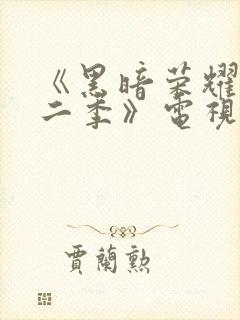 《黑暗荣耀
二季》電視
賈蘭勲